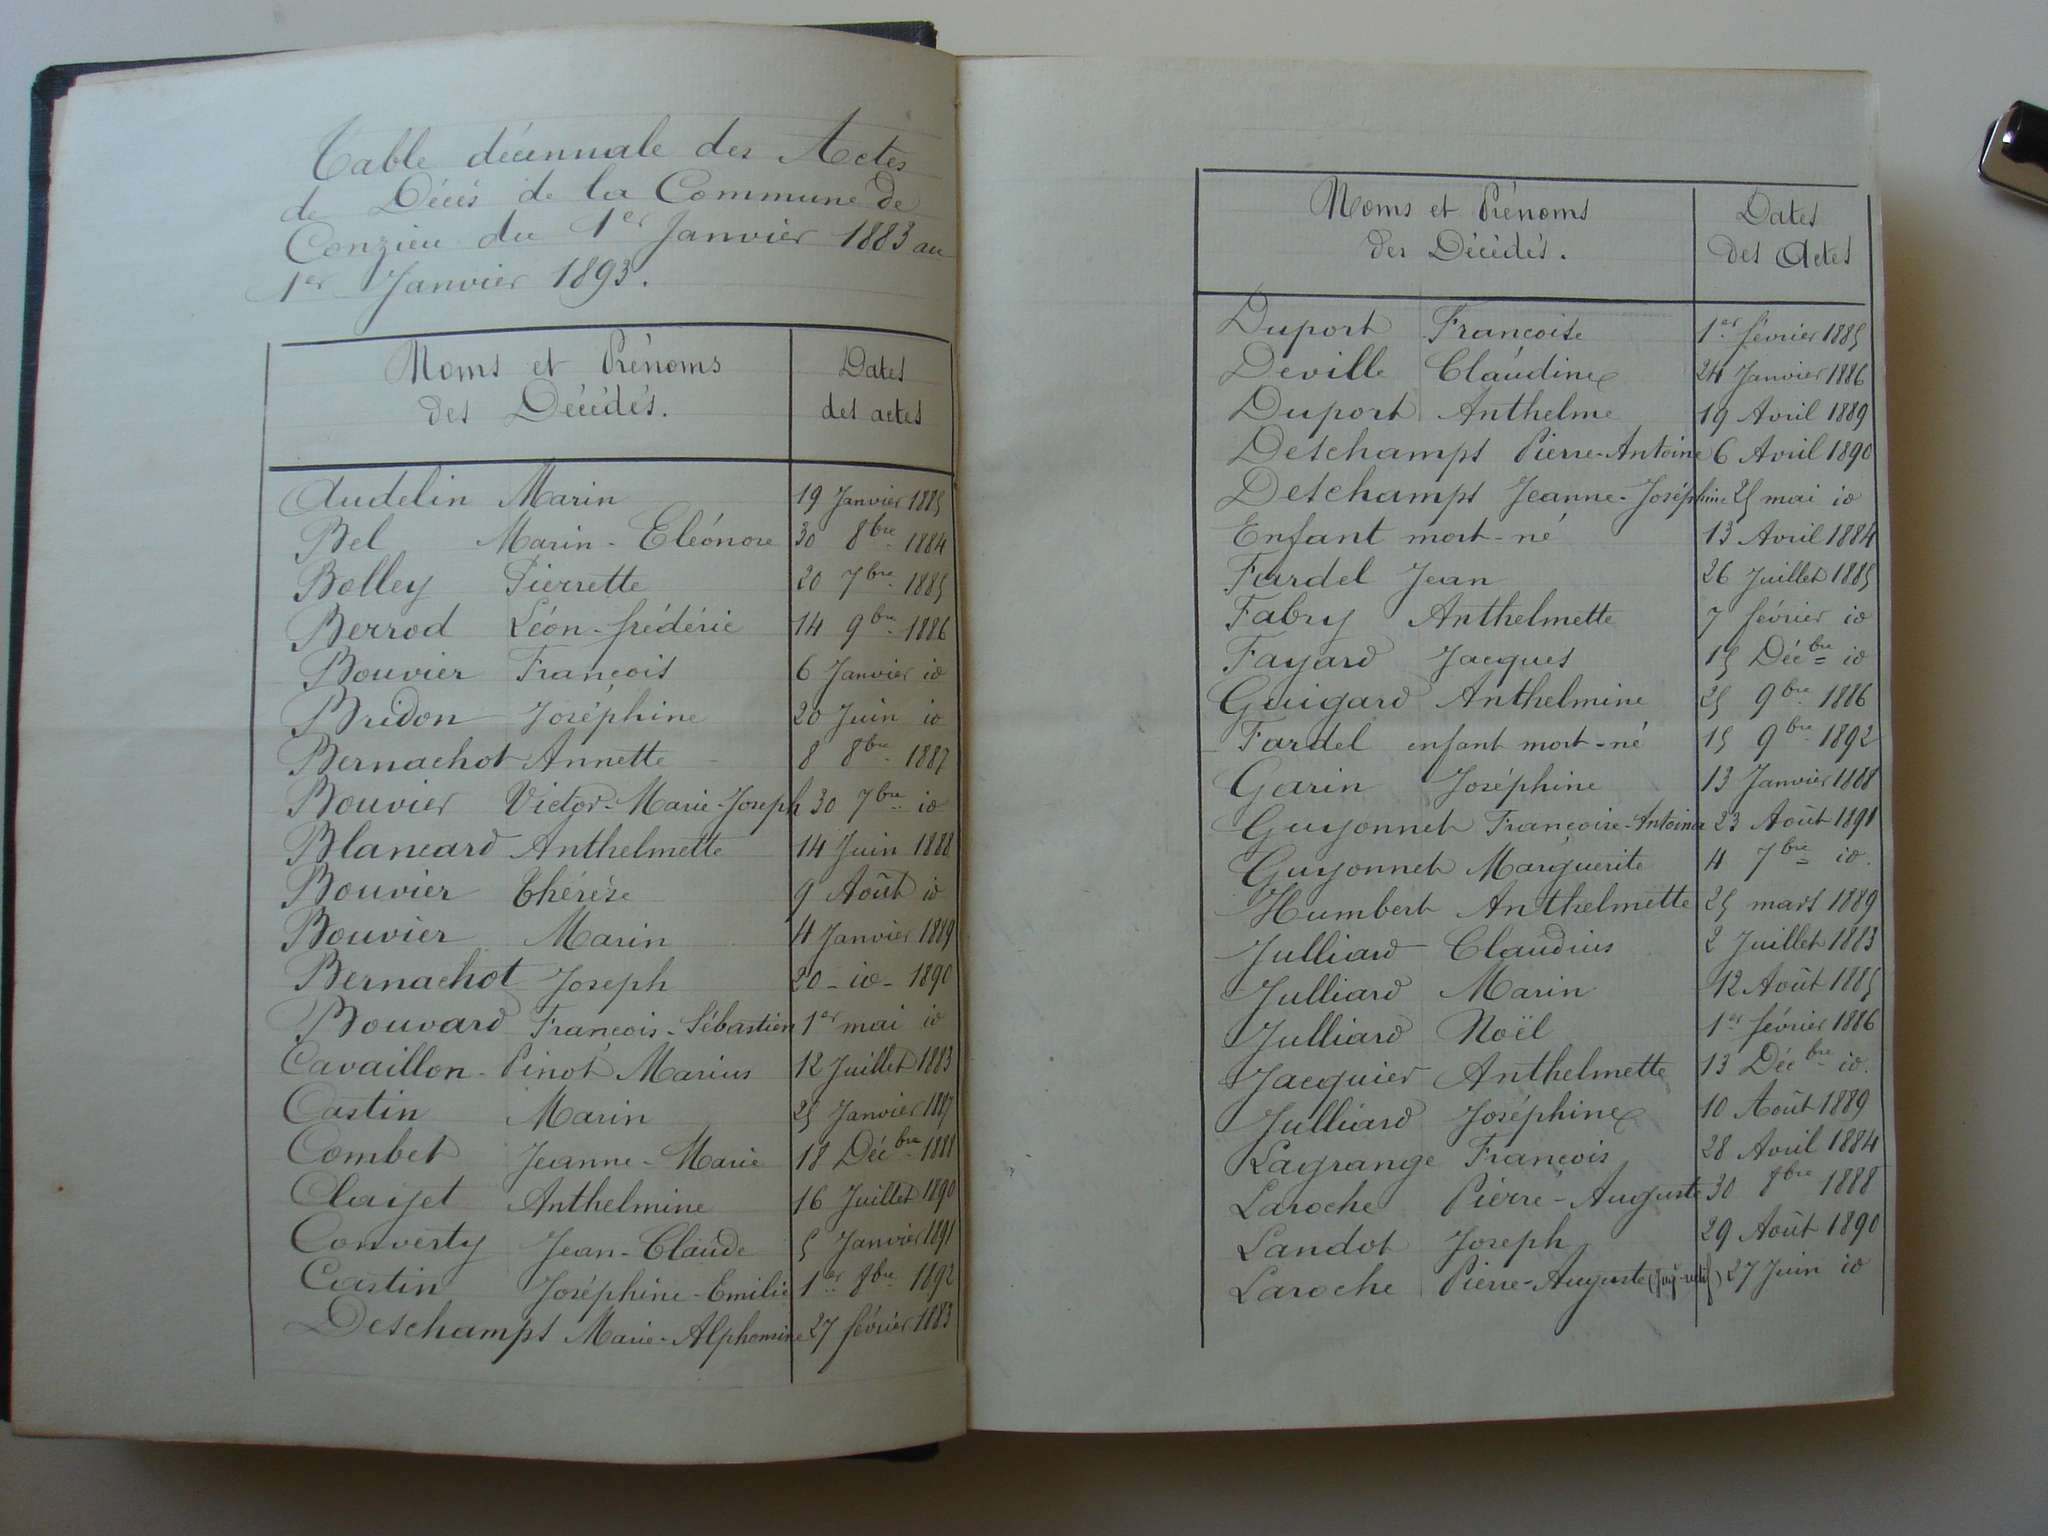 Table décennale des Actes
de Décès de la Commune de
Conzieu du 1er Janvier 1883 au
1er Janvier 1893.
Noms et Prénoms
des Décédés.
Dates
des actes
Audelin Marin 19 Janvier 1885
Bel Marin-Eléonore 30 8bre 1884
Bolley Pierrette 20 7bre 1885
Berrod Léon-frédéric 14 9bre 1886
Bouvier François 6 Janvier id
Bridon Joséphine 20 Juin id
Bernachot Annette 8 8bre 1887
Bouvier Victor-Marie-Joseph 30 7bre id
Blancard Anthelmette 14 Juin 1888
Bouvier Thérèse 9 Août id
Bouvier Marin 4 Janvier 1889
Bernachot Joseph 20 - id - 1890
Bouvard François-Sébastien 1er mai id
Cavaillon-Pinot Marius 12 Juillet 1883
Castin Marin 25 Janvier 1887
Combet Jeanne-Marie 18 Décbre 1888
Clayet Anthelmine 16 Juillet 1890
Converty Jean-Claude 5 Janvier 1891
Castin Joséphine-Emilie 1er 8bre 1892
Deschamps Marie-Alphonsine 27 février 1883
Noms et Prénoms
des Décédés.
Dates
des Actes
Duport Françoise 1er février 1885
Deville Claudine 24 Janvier 1886
Duport Anthelme 19 Avril 1889
Deschamps Pierre-Antoine 6 Avril 1890
Deschamps Jeanne-Joséphine 25 mai id
Enfant mort-né 13 Avril 1884
Fardel Jean 26 Juillet 1885
Fabry Anthelmette 7 février id
Fayard Jacques 15 Décbre id
Guigard Anthelmine 25 9bre 1886
Fardel enfant mort-né 15 9bre 1892
Garin Joséphine 13 Janvier 1888
Guyonnet Françoise-Antoinette 23 Août 1891
Guyonnet Marguerite 4 7bre id.
Humbert Anthelmette 25 mars 1889
Julliard Claudius 2 Juillet 1883
Julliard Marin 12 Août 1885
Julliard Noël 1er février 1886
Jacquier Anthelmette 13 Décbre id.
Julliard Joséphine 10 Août 1889
Lagrange François 28 Avril 1884
Laroche Pierre-Auguste 30 8bre 1888
Landot Joseph 29 Août 1890
Laroche Pierre-Auguste 27 Juin id